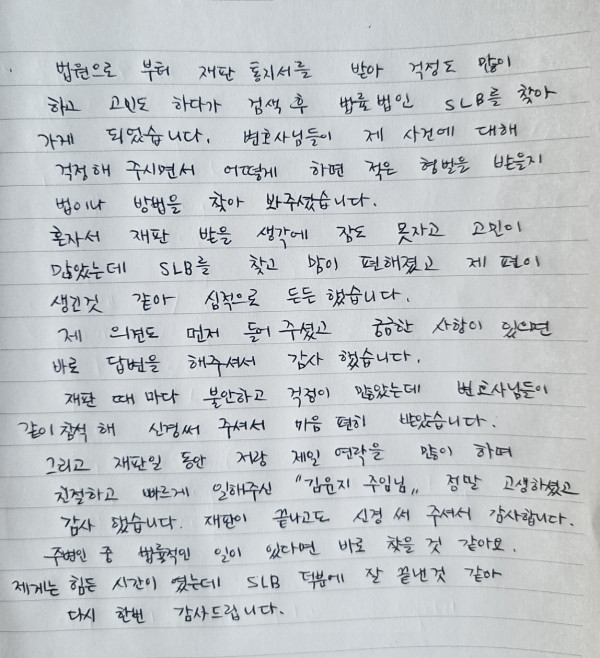 법원으로 부터 재판 통지서를 받아 걱정도 많이
하고 고민도 하다가 검색 후 법률법인 SLB를 찾아
가게 되었습니다. 변호사님들이 제 사건에 대해
걱정해 주시면서 어떻게 하면 적은 형벌을 받을지
법이나 방법을 찾아 봐주셨습니다.
혼자서 재판 받을 생각에 잠도 못자고 고민이
많았는데 SLB를 찾고 맘이 편해졌고 제 편이
생긴것 같아 심적으로 든든 했습니다.
제 의견도 먼저 들어 주셨고 궁금한 사항이 있으면
바로 답변을 해주셔서 감사 했습니다.
재판 때 마다 불안하고 걱정이 많았는데 변호사님들이
같이 참석 해 신경써 주셔서 마음 편히 받았습니다.
그리고 재판일 동안 저랑 제일 연락을 많이 하며
친절하고 빠르게 일해주신 "김윤지 주임님„ 정말 고생하셨고
감사 했습니다. 재판이 끝나고도 신경 써 주셔서 감사합니다.
주변인 중 법률적인 일이 있다면 바로 찾을 것 같아요.
제게는 힘든 시간이 였는데 SLB 덕분에 잘 끝낸것 같아
다시 한번 감사드립니다.